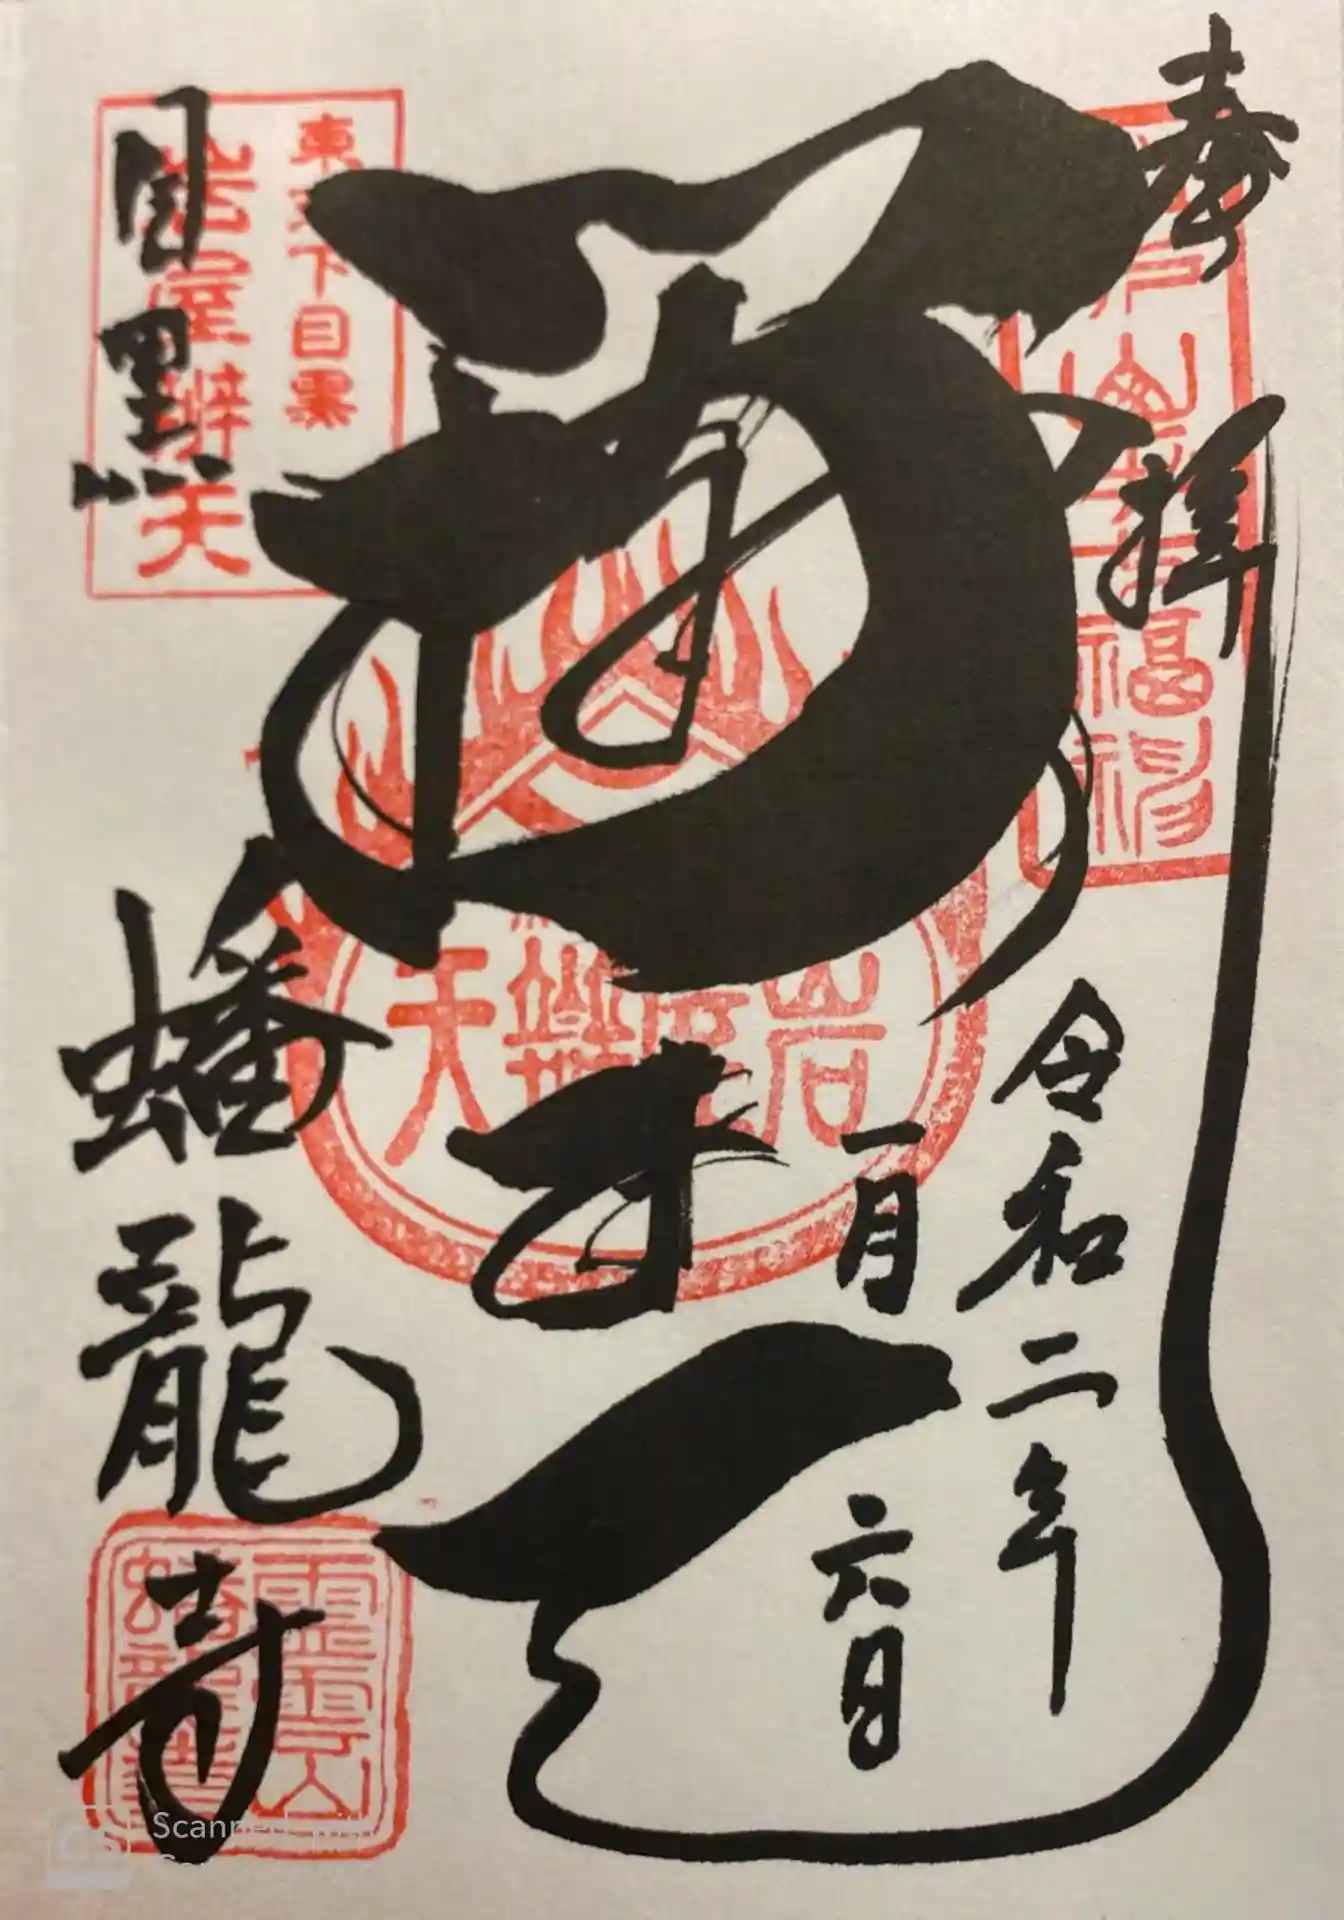 奉拝
福神
令和二年
一月六日
才天
岩屋辨天
目黒
蟠龍寺
東京下目黒
岩屋辨天
霊雲山
蟠龍寺
Scanned with